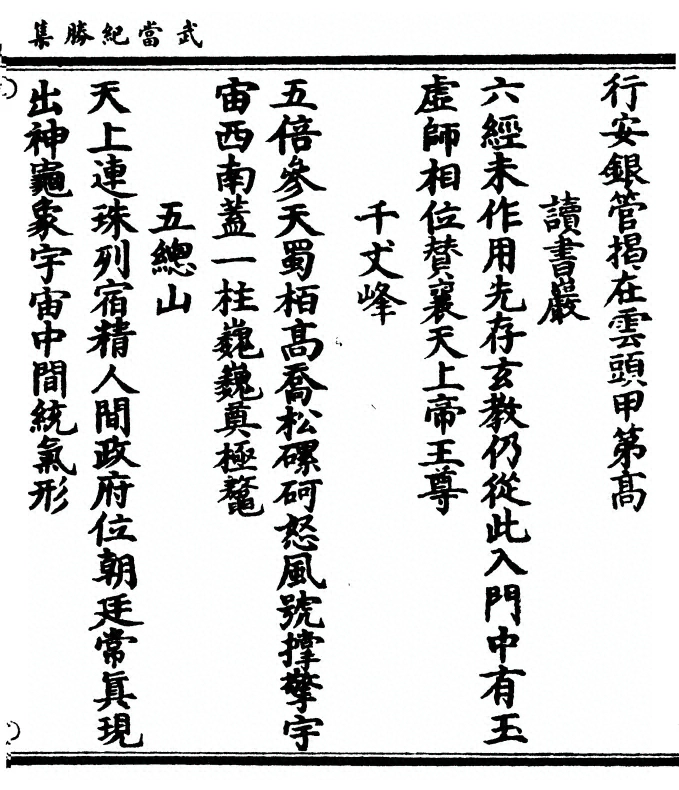 武當紀勝集
行安銀管揭在雲頭甲第高
讀書巖
六經未作用先存玄教仍從此入門中有玉
虛師相位賛襄天上帝王尊
千丈峰
五倍參天蜀栢高喬松磥砢怒風號撑擎宇
宙西南蓋一柱巍巍奠極鼇
五總山
天上連珠列宿精人間政府位朝廷常眞現
出神龜象宇宙中間統氣形